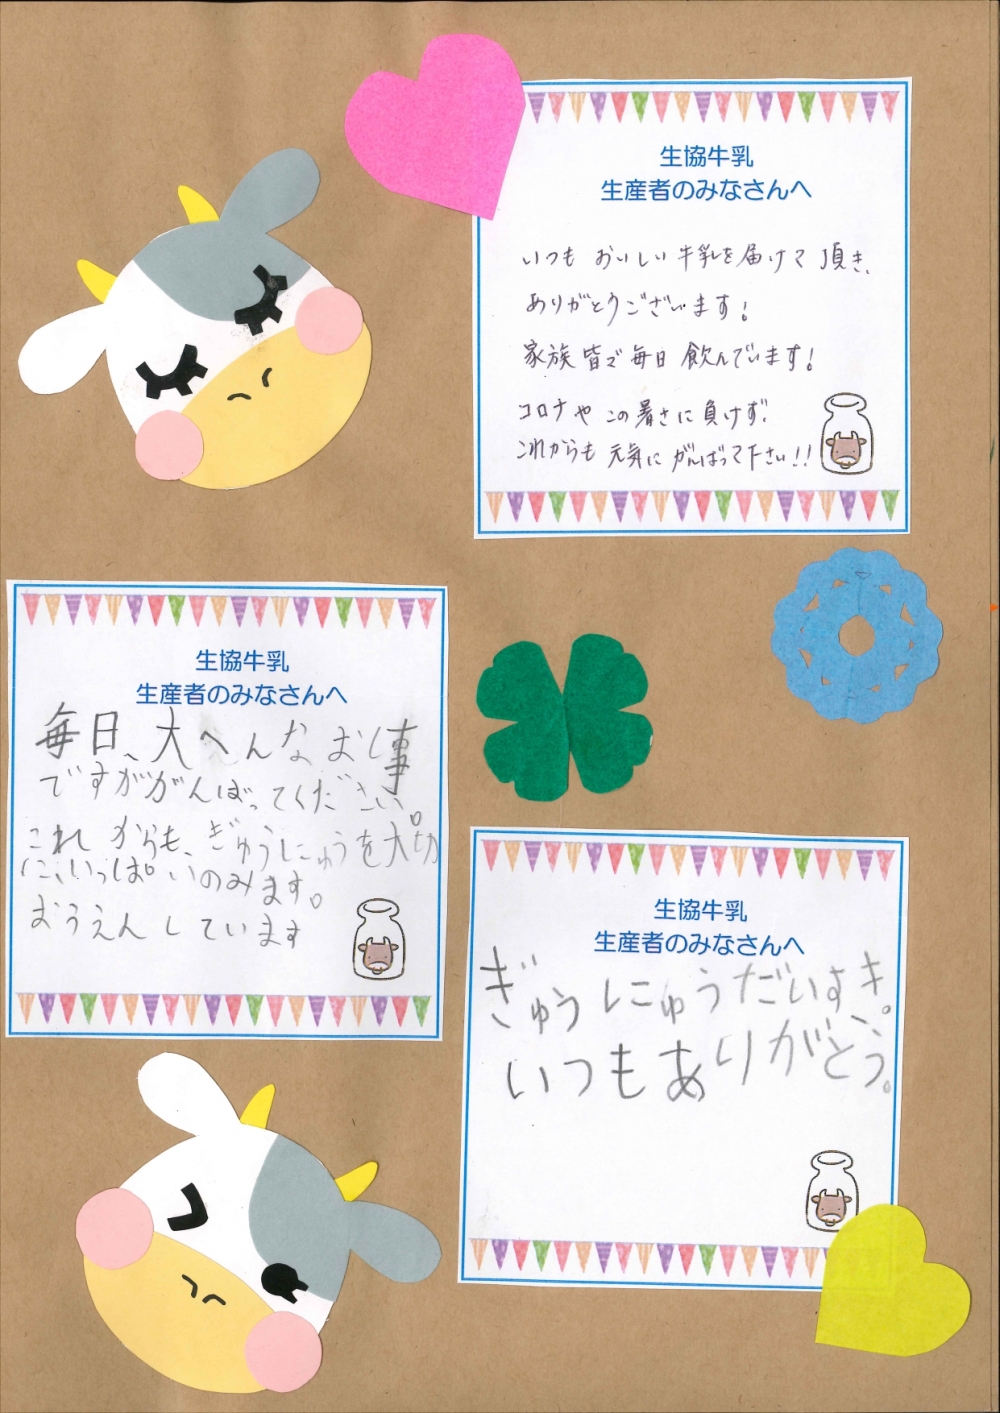 生協牛乳
生産者のみなさんへ
いつも おいしい 牛乳を届けて頂き、
ありがとうございます!
家族皆で毎日飲んでいます!
コロナや この暑さに負けず!
これからも 元気に がんばって下さい!!
生協牛乳
生産者のみなさんへ
毎日、大へんなお仕事
ですががんばってください。
これからも、ぎゅうにゅうを大切
に、いっぱいのみます。
おうえんしています
生協牛乳
生産者のみなさんへ
ぎゅうにゅうだいすき。
いつもありがとう。